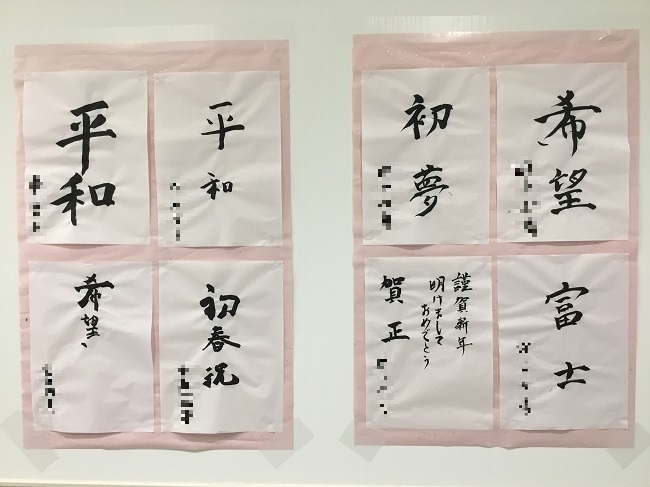 平和
平和
希望、
初春祝
初夢
希望
謹賀新年
明けまして
おめでとう
賀正
富士